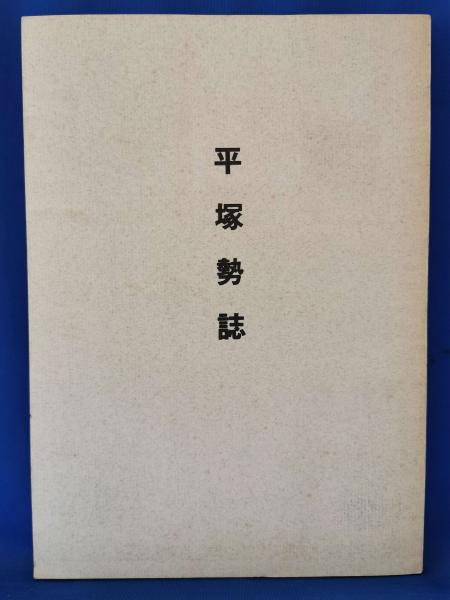 平塚勢誌